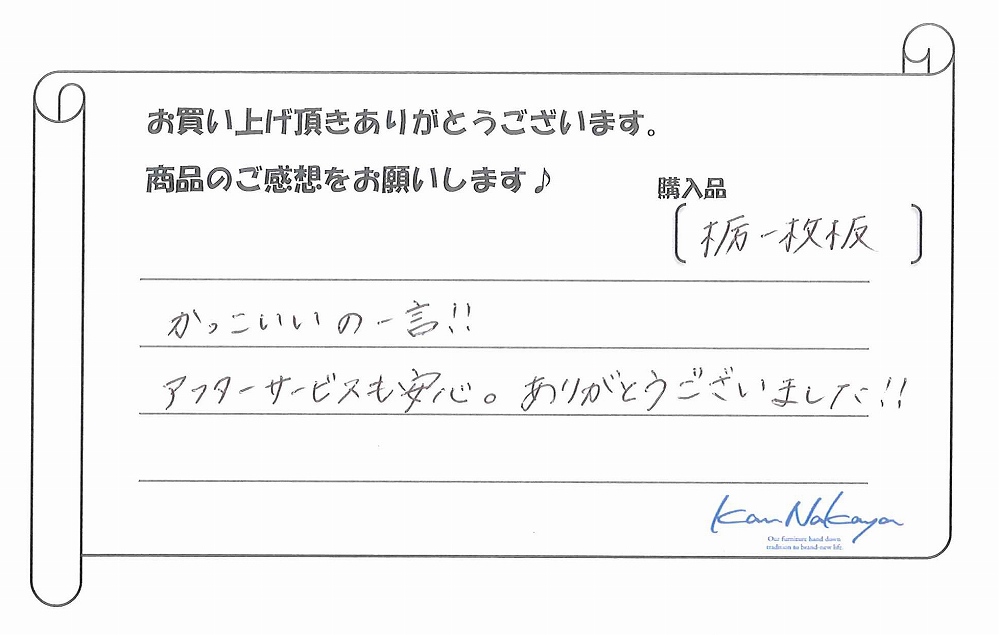 お買い上げ頂きありがとうございます。
商品のご感想をお願いします♪
購入品
〔栃一枚板〕
かっこいいの一言!!
アフターサービスも安心。ありがとうございました!!
Kan Nakaya
Our furniture hand down
tradition to brand-new life